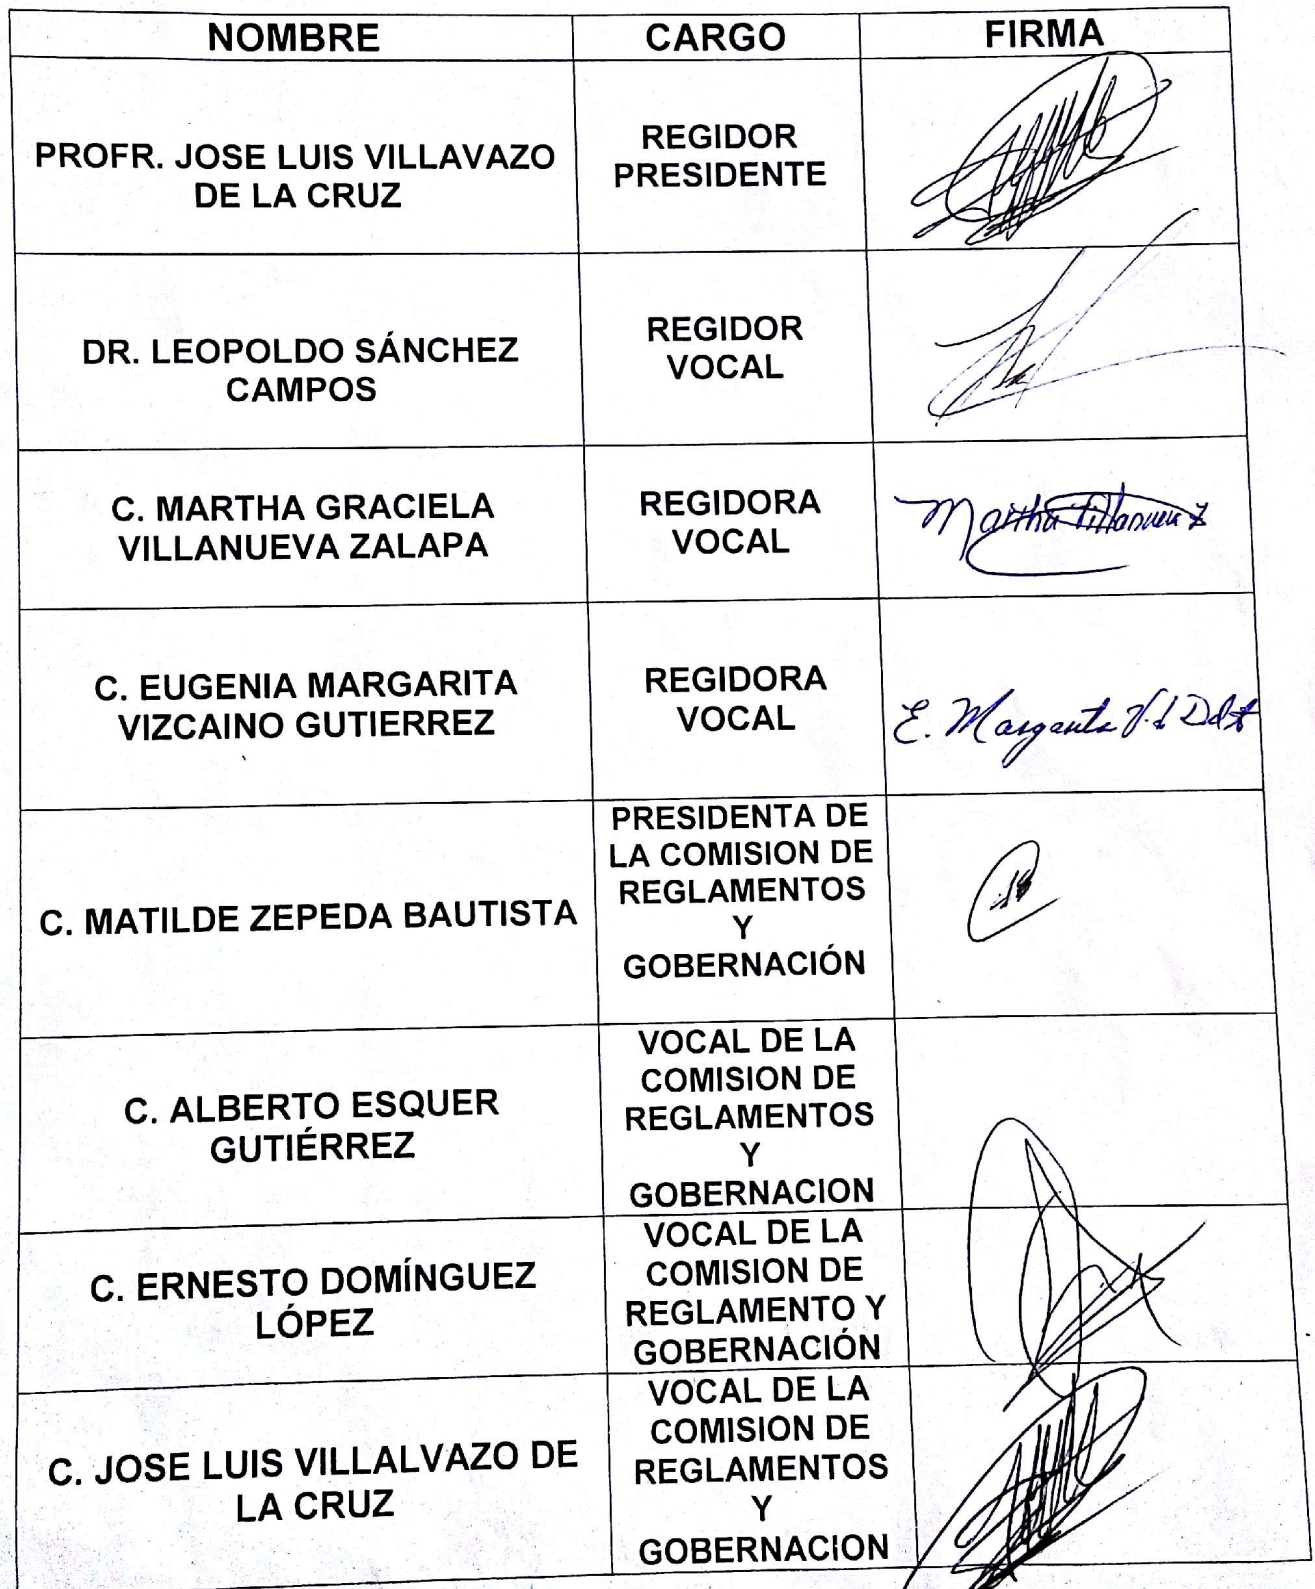 NOMBRE CARGO FIRMA
PROFR. JOSE LUIS VILLAVAZO
DE LA CRUZ
REGIDOR
PRESIDENTE
DR. LEOPOLDO SÁNCHEZ
CAMPOS
REGIDOR
VOCAL
C. MARTHA GRACIELA
VILLANUEVA ZALAPA
REGIDORA
VOCAL
Martha Villanueva Z
C. EUGENIA MARGARITA
VIZCAINO GUTIERREZ
REGIDORA
VOCAL
E. Margarita
C. MATILDE ZEPEDA BAUTISTA
PRESIDENTA DE
LA COMISION DE
REGLAMENTOS
Y
GOBERNACIÓN
C. ALBERTO ESQUER
GUTIÉRREZ
VOCAL DE LA
COMISION DE
REGLAMENTOS
Y
GOBERNACION
C. ERNESTO DOMÍNGUEZ
LÓPEZ
VOCAL DE LA
COMISION DE
REGLAMENTO Y
GOBERNACIÓN
C. JOSE LUIS VILLALVAZO DE
LA CRUZ
VOCAL DE LA
COMISION DE
REGLAMENTOS
Y
GOBERNACION